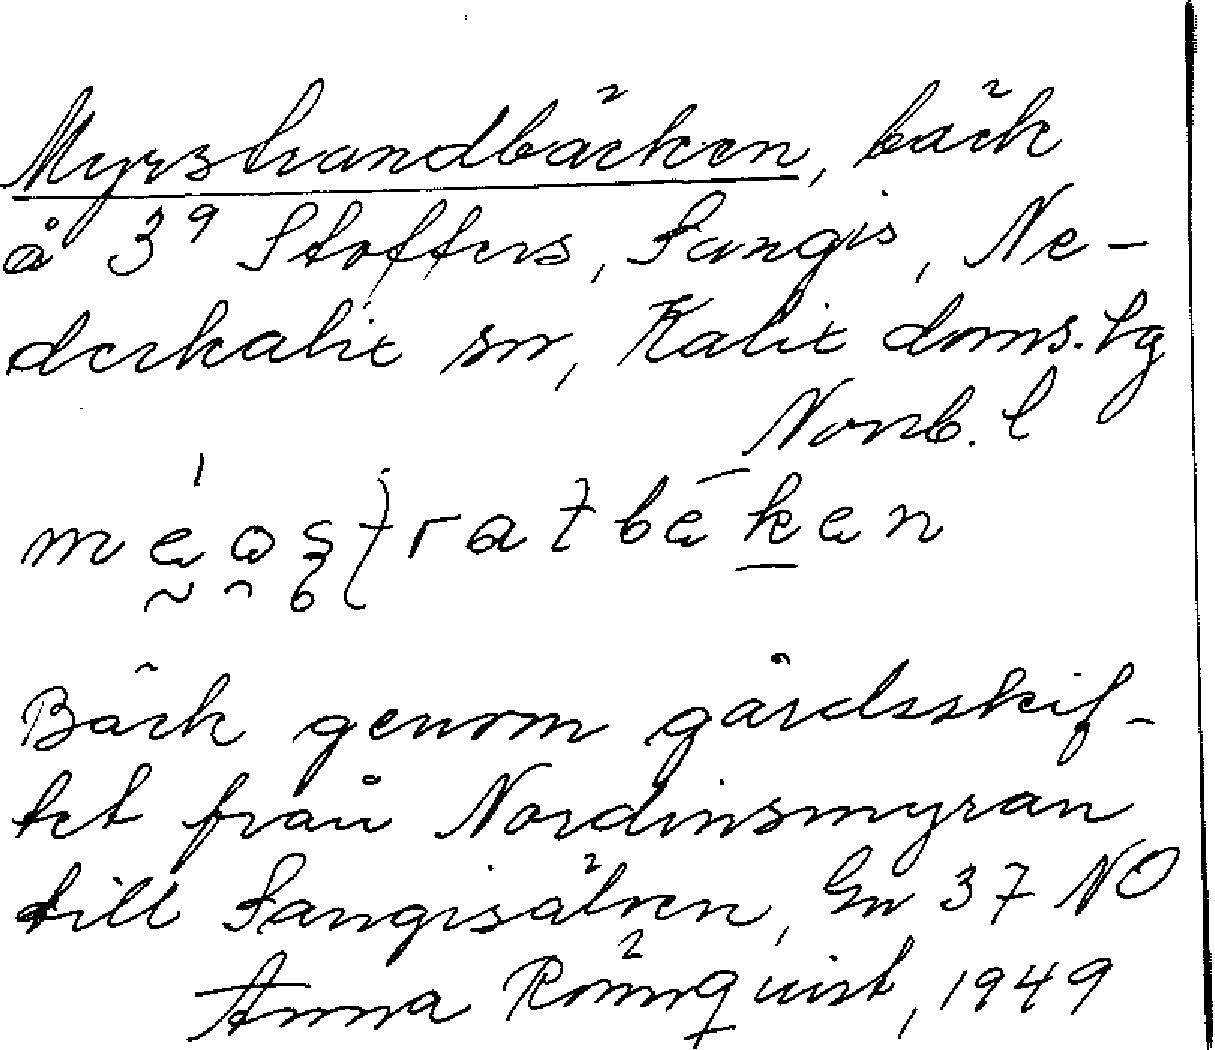 Myrstrandbäcken, bäck
å 3⁹ Stoffers, Sangis, Ne-
derkalix sn, Kalix doms.lg
Norrb. l
Bäck genom gårdsskif-
tet från Nordinsmyran
till Sangisälven, Gn 37 NO
Anna Rönnquist, 1949